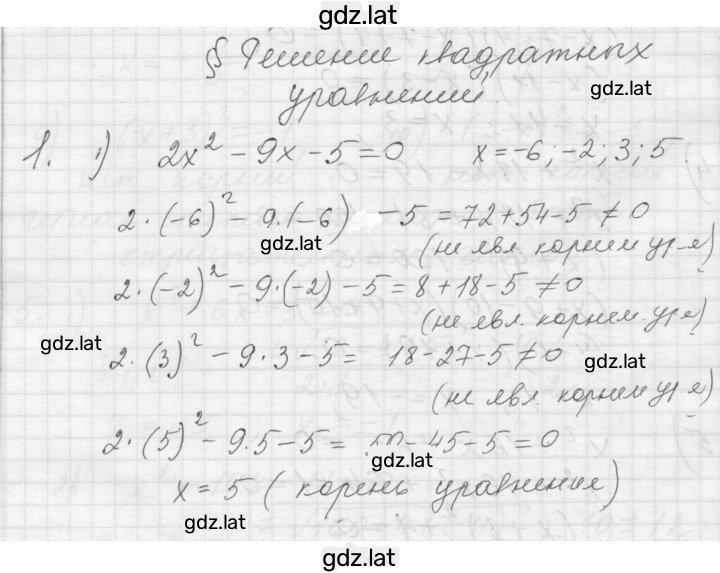 gdz.lat
§ Решение квадратных
уравнений.
gdz.lat
1. 1) 2x² - 9x - 5 = 0 x = -6; -2; 3; 5.
2·(-6)² - 9·(-6) - 5 = 72 + 54 - 5 ≠ 0
gdz.lat
(не явл. корнем ур-я)
2·(-2)² - 9·(-2) - 5 = 8 + 18 - 5 ≠ 0
(не явл. корнем ур-я)
gdz.lat
2·(3)² - 9·3 - 5 = 18 - 27 - 5 ≠ 0
gdz.lat
(не явл. корнем ур-я)
2·(5)² - 9·5 - 5 = 50 - 45 - 5 = 0
gdz.lat
x = 5 (корень уравнения)
gdz.lat
gdz.lat